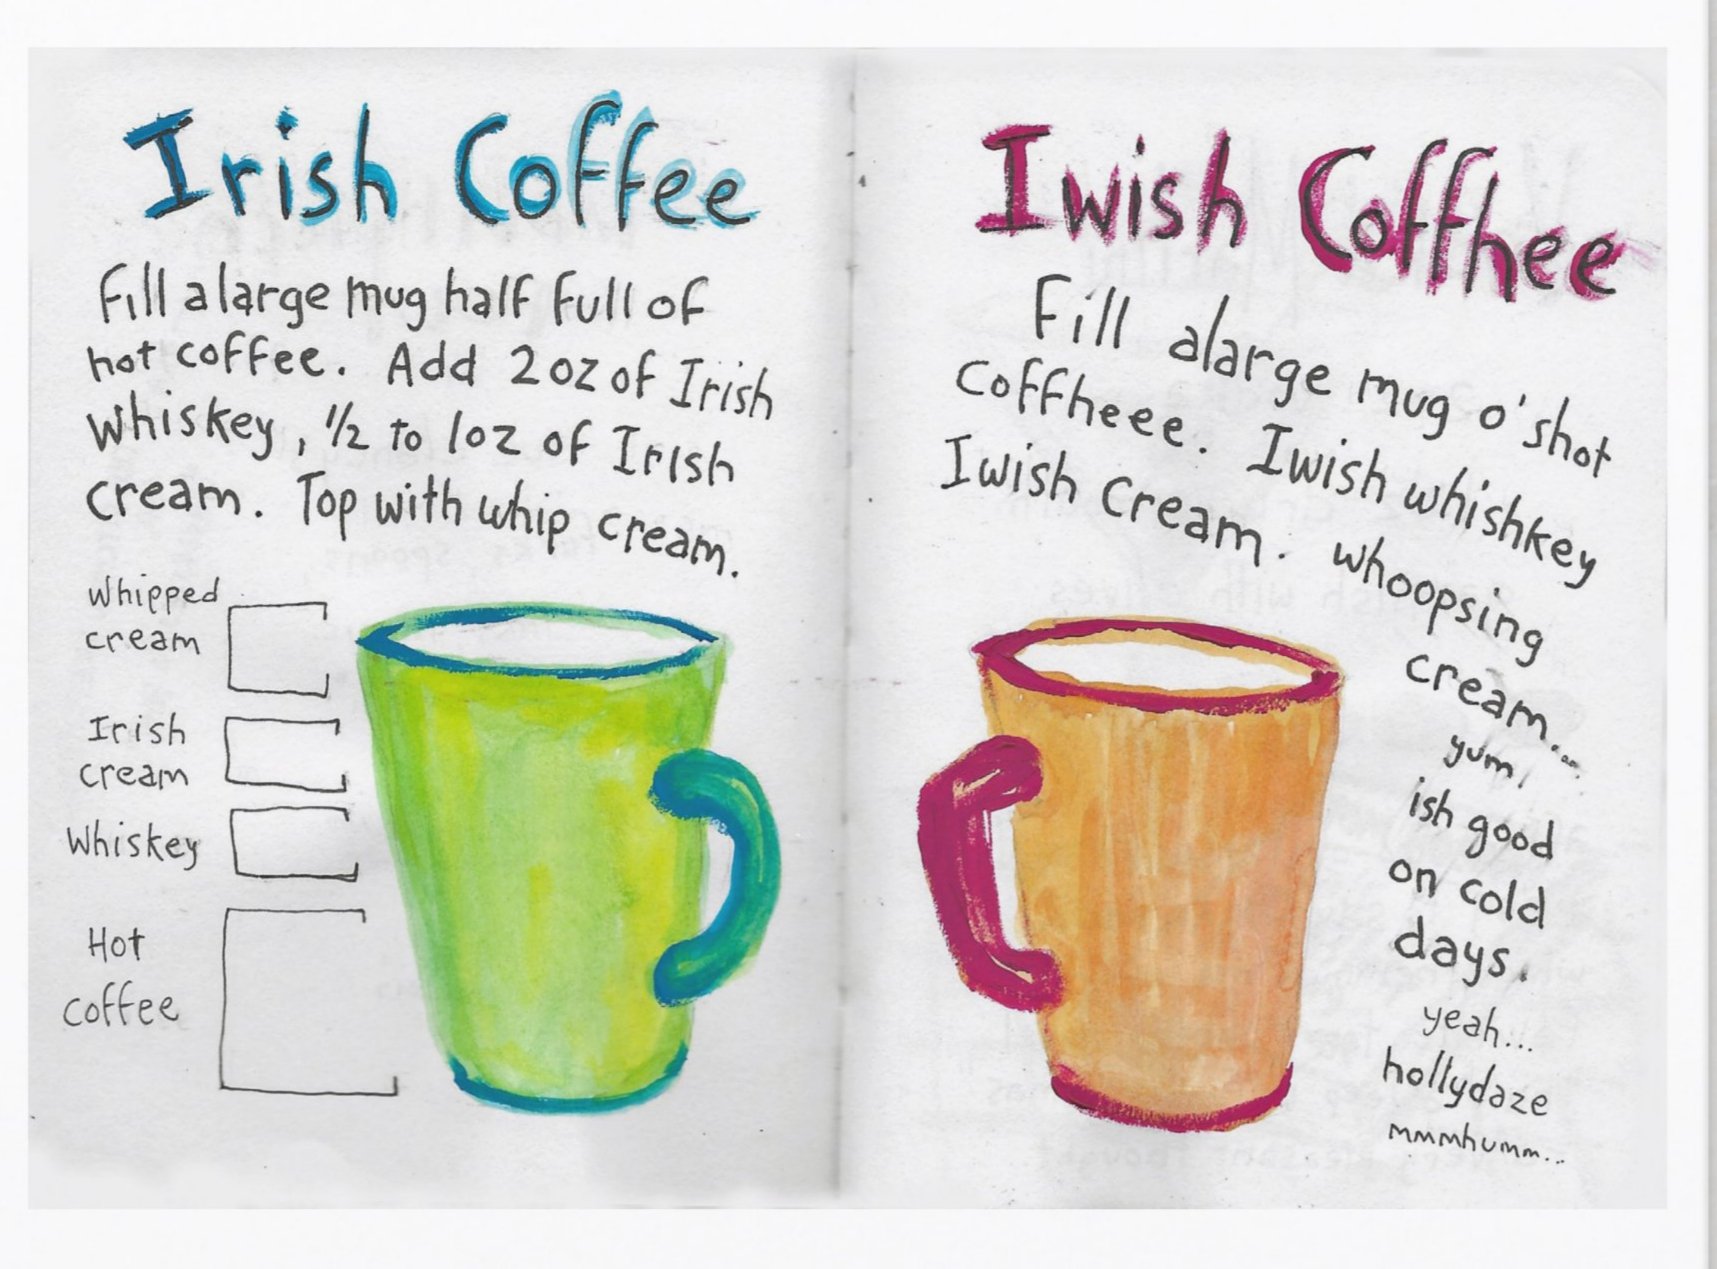 Irish Coffee
Fill a large mug half full of
hot coffee. Add 2 oz of Irish
Whiskey, 1/2 to 1oz of Irish
cream. Top with whip cream.
Whipped
cream
Irish
cream
Whiskey
Hot
coffee
Iwish Coffhee
Fill alarge mug o'shot
Coffheee. Iwish whishkey
Iwish Cream. whoopsing
cream...
yum,
ish good
on cold
days.
yeah...
hollydaze
mmmhumm...